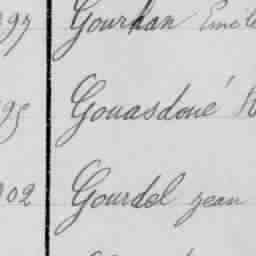 97 Gourhan Emile
95 Gouasdoué
902 Gourdel jean